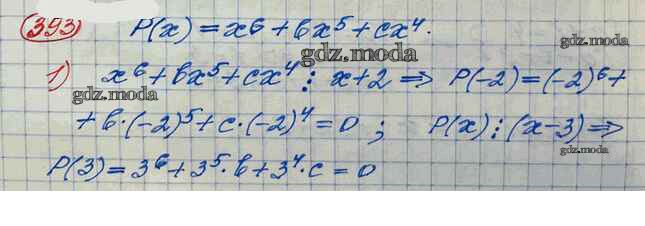 393 P(x) = x⁶ + bx⁵ + cx⁴.
gdz.moda
1) x⁶ + bx⁵ + cx⁴ ⋮ x+2 ⇒ P(-2) = (-2)⁶ +
gdz.moda
gdz.moda
+ b·(-2)⁵ + c·(-2)⁴ = 0 ; P(x) ⋮ (x-3) ⇒
gdz.moda
P(3) = 3⁶ + 3⁵·b + 3⁴·c = 0